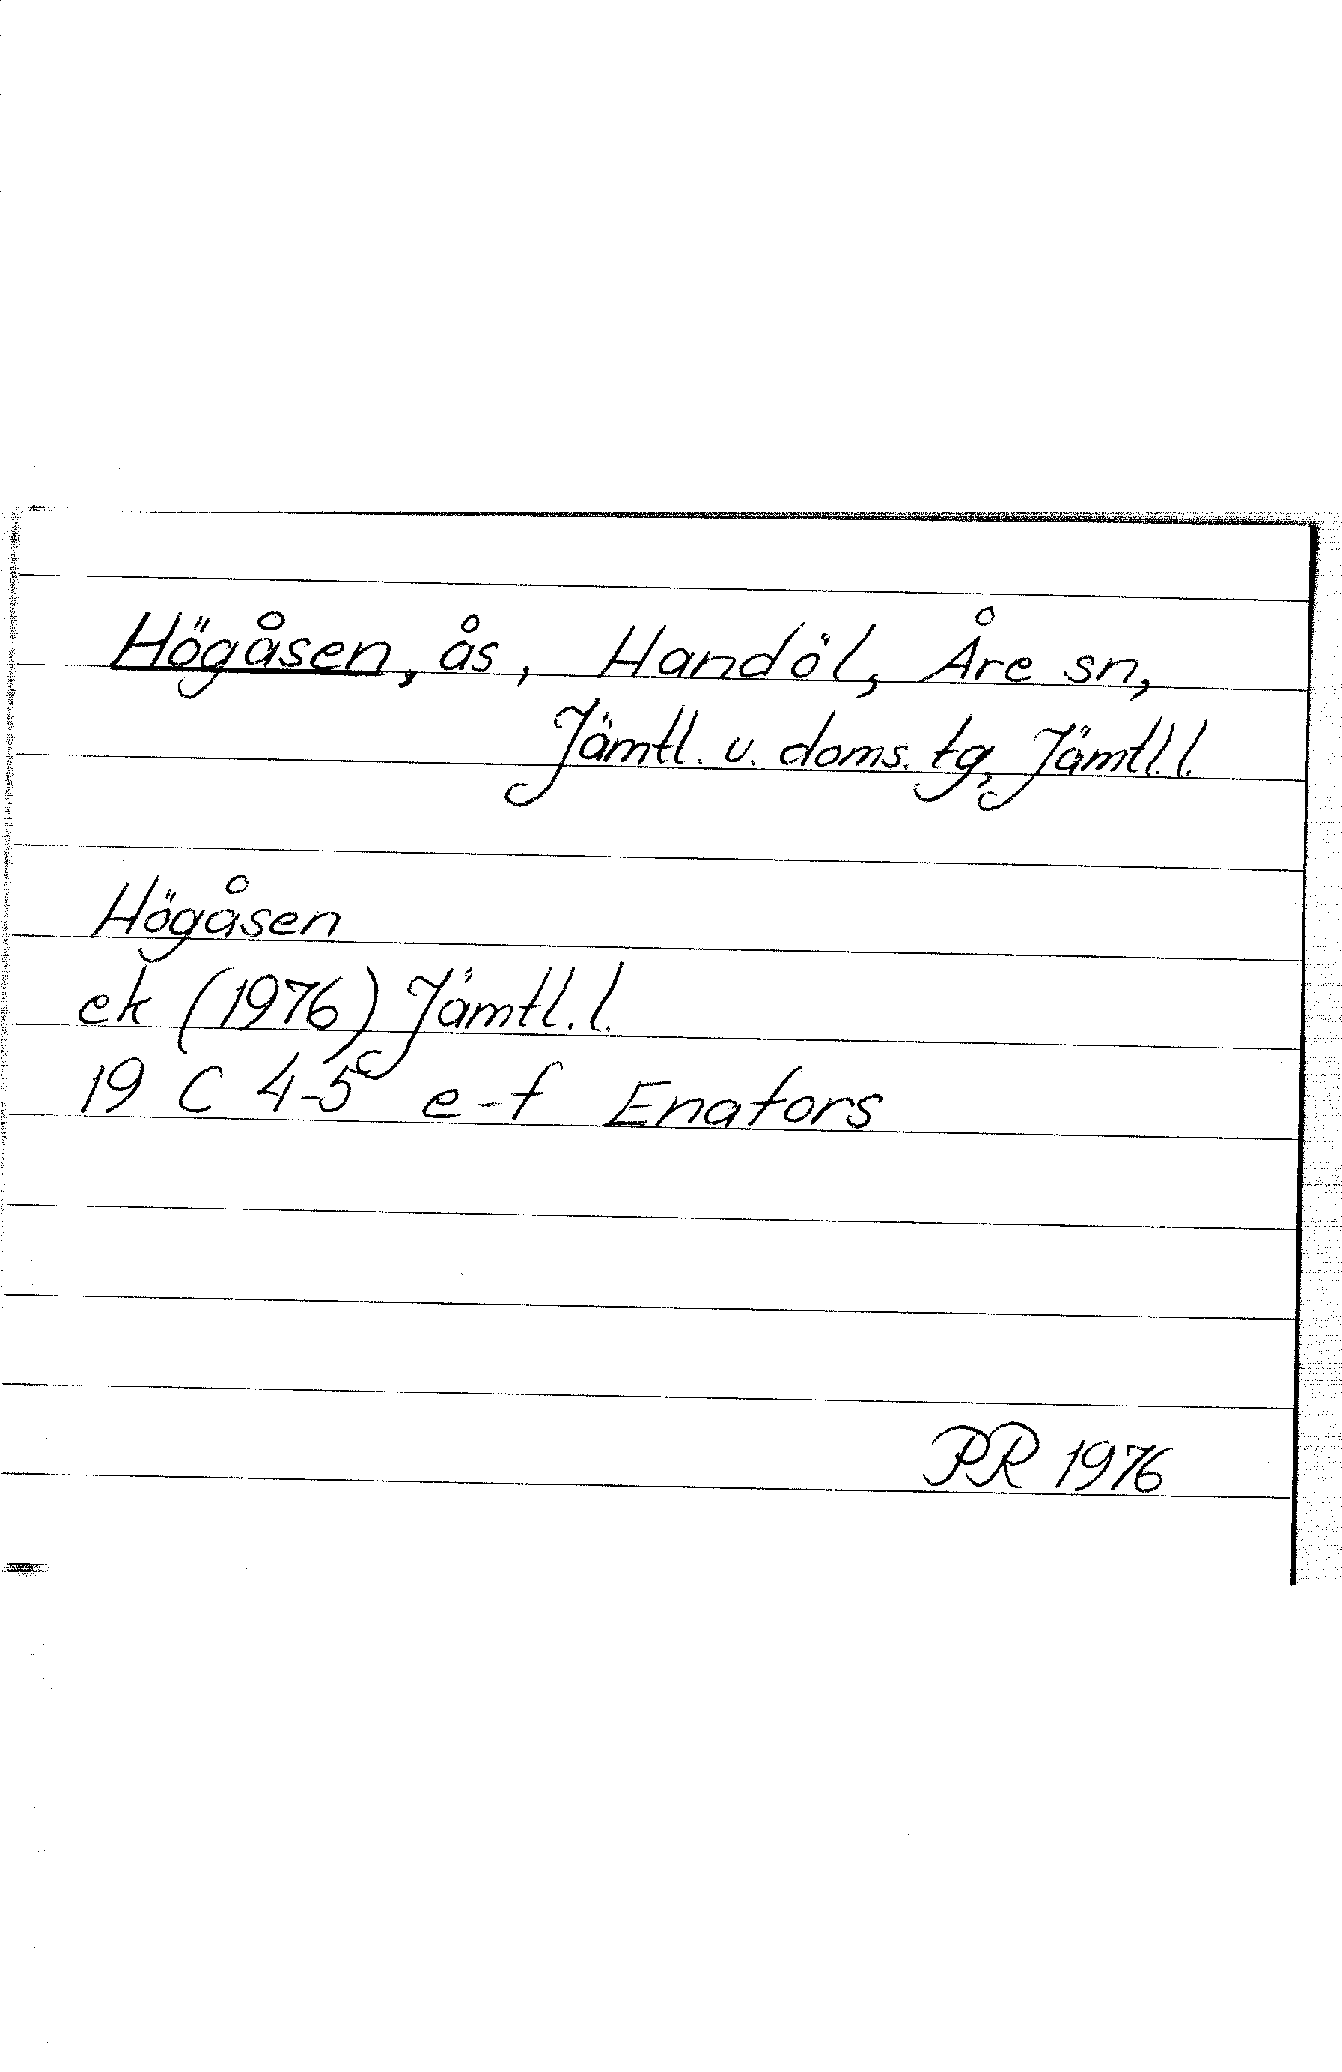 Högåsen, ås, Handöl, Åre sn,
Jämtl. v. doms. tg, Jämtl.l.
Högåsen
ek (1976) Jämtl.l.
19 C 4-5 e-f Enafors
PR 1976